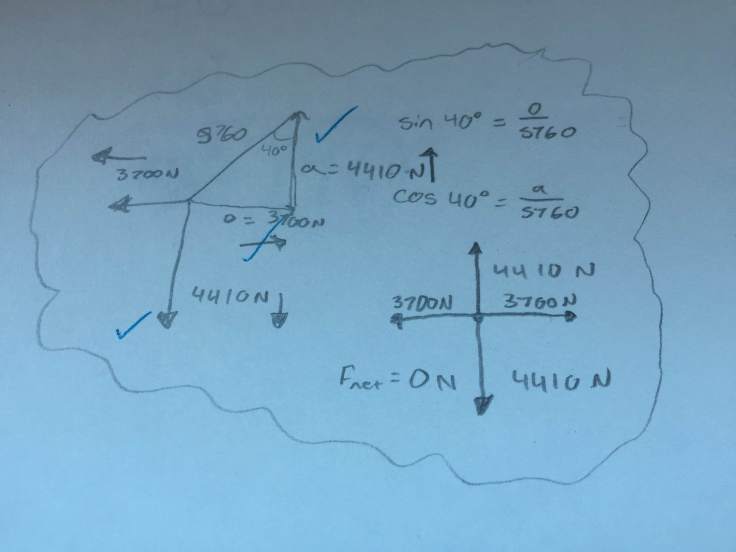 5760
40°
3700N
a = 4410 N
o = 3700N
4410N
sin 40° = o/5760
cos 40° = a/5760
4410 N
3700N
3700N
Fnet = 0N
4410 N